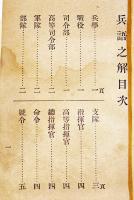 兵語之解目次
兵學 一頁
戰役 一
司令部 一
高等司令部 二
軍隊 二
部隊 二
支隊 三頁
指揮官 四
高等指揮官 四
總指揮官 四
命令 四
號令 五
一